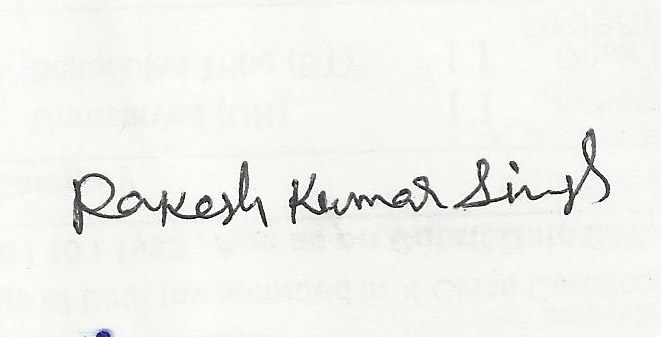 Rakesh Kumar Singh